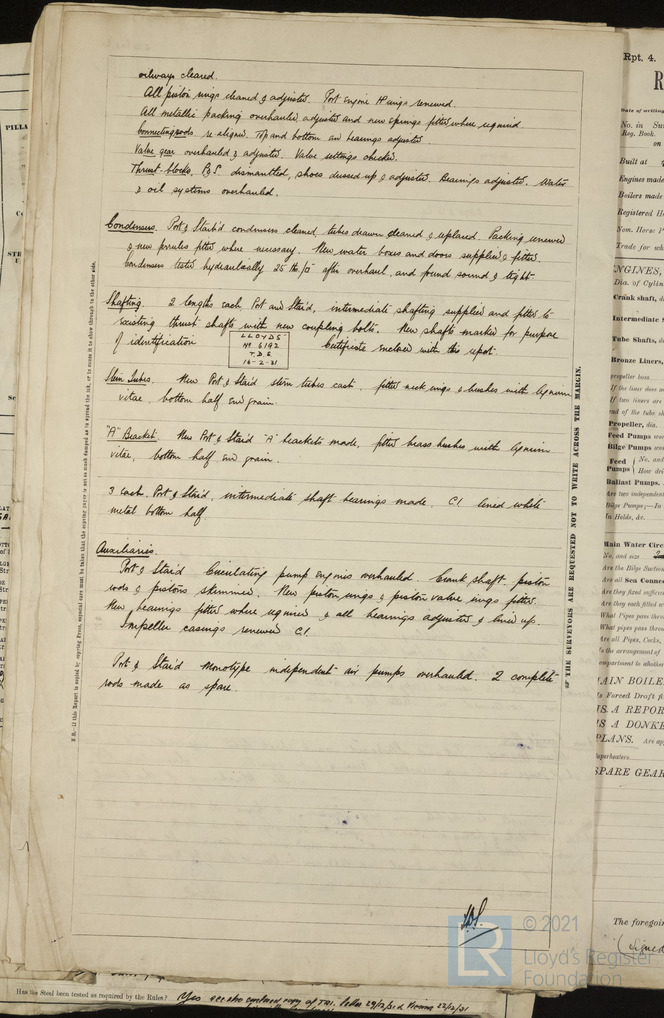 oilways cleared.
All piston rings cleaned & adjusted. Port Engine H rings renewed.
All metallic packing overhauled, adjusted and new springs fitted where required.
Connecting rods re aligned. Top and bottom end bearings adjusted.
Valve gear overhauled & adjusted. Valve settings checked.
Thrust-blocks. P&S. dismantled, shoes dressed up & adjusted. Bearings adjusted. Water
& oil systems overhauled.
Condensers. Port & Starb'd condensers cleaned, tubes drawn cleaned & replaced. Packing renewed
& new ferrules fitted where necessary. New water boxes and doors supplied & fitted.
Condensers tested hydraulically 25 lb/□" after overhaul, and found sound & tight.
Shafting. 2 lengths each, Port and Starb'd, intermediate shafting supplied and fitted to
existing thrust shafts with new coupling bolts. New shafts marked for purpose
of identification
LLOYDS
No 6192
T.D.S.
16-2-31
Certificate enclosed with this report.
Stern Tubes. New Port & Starb'd stern tubes cast, fitted neck rings & bushes with lignum
vitae, bottom half end grain.
"A" Bracket. New Port & Starb'd "A" brackets made, fitted brass bushes with lignum
vitae, bottom half end grain.
3 each, Port & Starb'd, intermediate shaft bearings made. C.I. lined white
metal bottom half.
Auxiliaries.
Port & Starb'd Circulating pump engines overhauled. Crank shaft, piston
rods & pistons skimmed. New piston rings & piston valve rings fitted.
New bearings fitted where required & all bearings adjusted & lined up.
Impeller casings renewed C.I.
Port & Starb'd Monotype independent air pumps overhauled. 2 complete
rods made as spare.
N.B.—If this Report is copied by copying Press, especial care must be taken that the copying paper is not so much damped as to spread the ink, or to cause it to show through to the other side.
THE SURVEYORS ARE REQUESTED NOT TO WRITE ACROSS THE MARGIN.
© 2021
Lloyd's Register
Foundation
Has the Steel been tested as required by the Rules? Yes see also enclosed copy of
Rpt. 4.
Date of writing
No. in
Reg. Book.
on
Built at
Engines made
Boilers made
Registered
Nom. Horse
Trade for
ENGINES,
Dia. of
Crank shaft,
Intermediate
Tube Shafts,
Bronze Liners,
propeller boss
If the liner does
If two liners are
end of the tube
Propeller, dia.
Feed Pumps
Bilge Pumps
Feed
Pumps
No. and
How
Ballast Pumps,
Are two independent
Bilge Pumps;—In
In Holds, &c.
Main Water
No. and size
Are the Bilge
Are all Sea
Are they fixed
Are they each
What Pipes pass
What pipes pass
Are all Pipes, Cocks,
Is the arrangement of
MAIN
Is Forced Draft
IS A
IS A
PLANS. Are
Superheaters
SPARE GEAR
The foregoing
(Signed